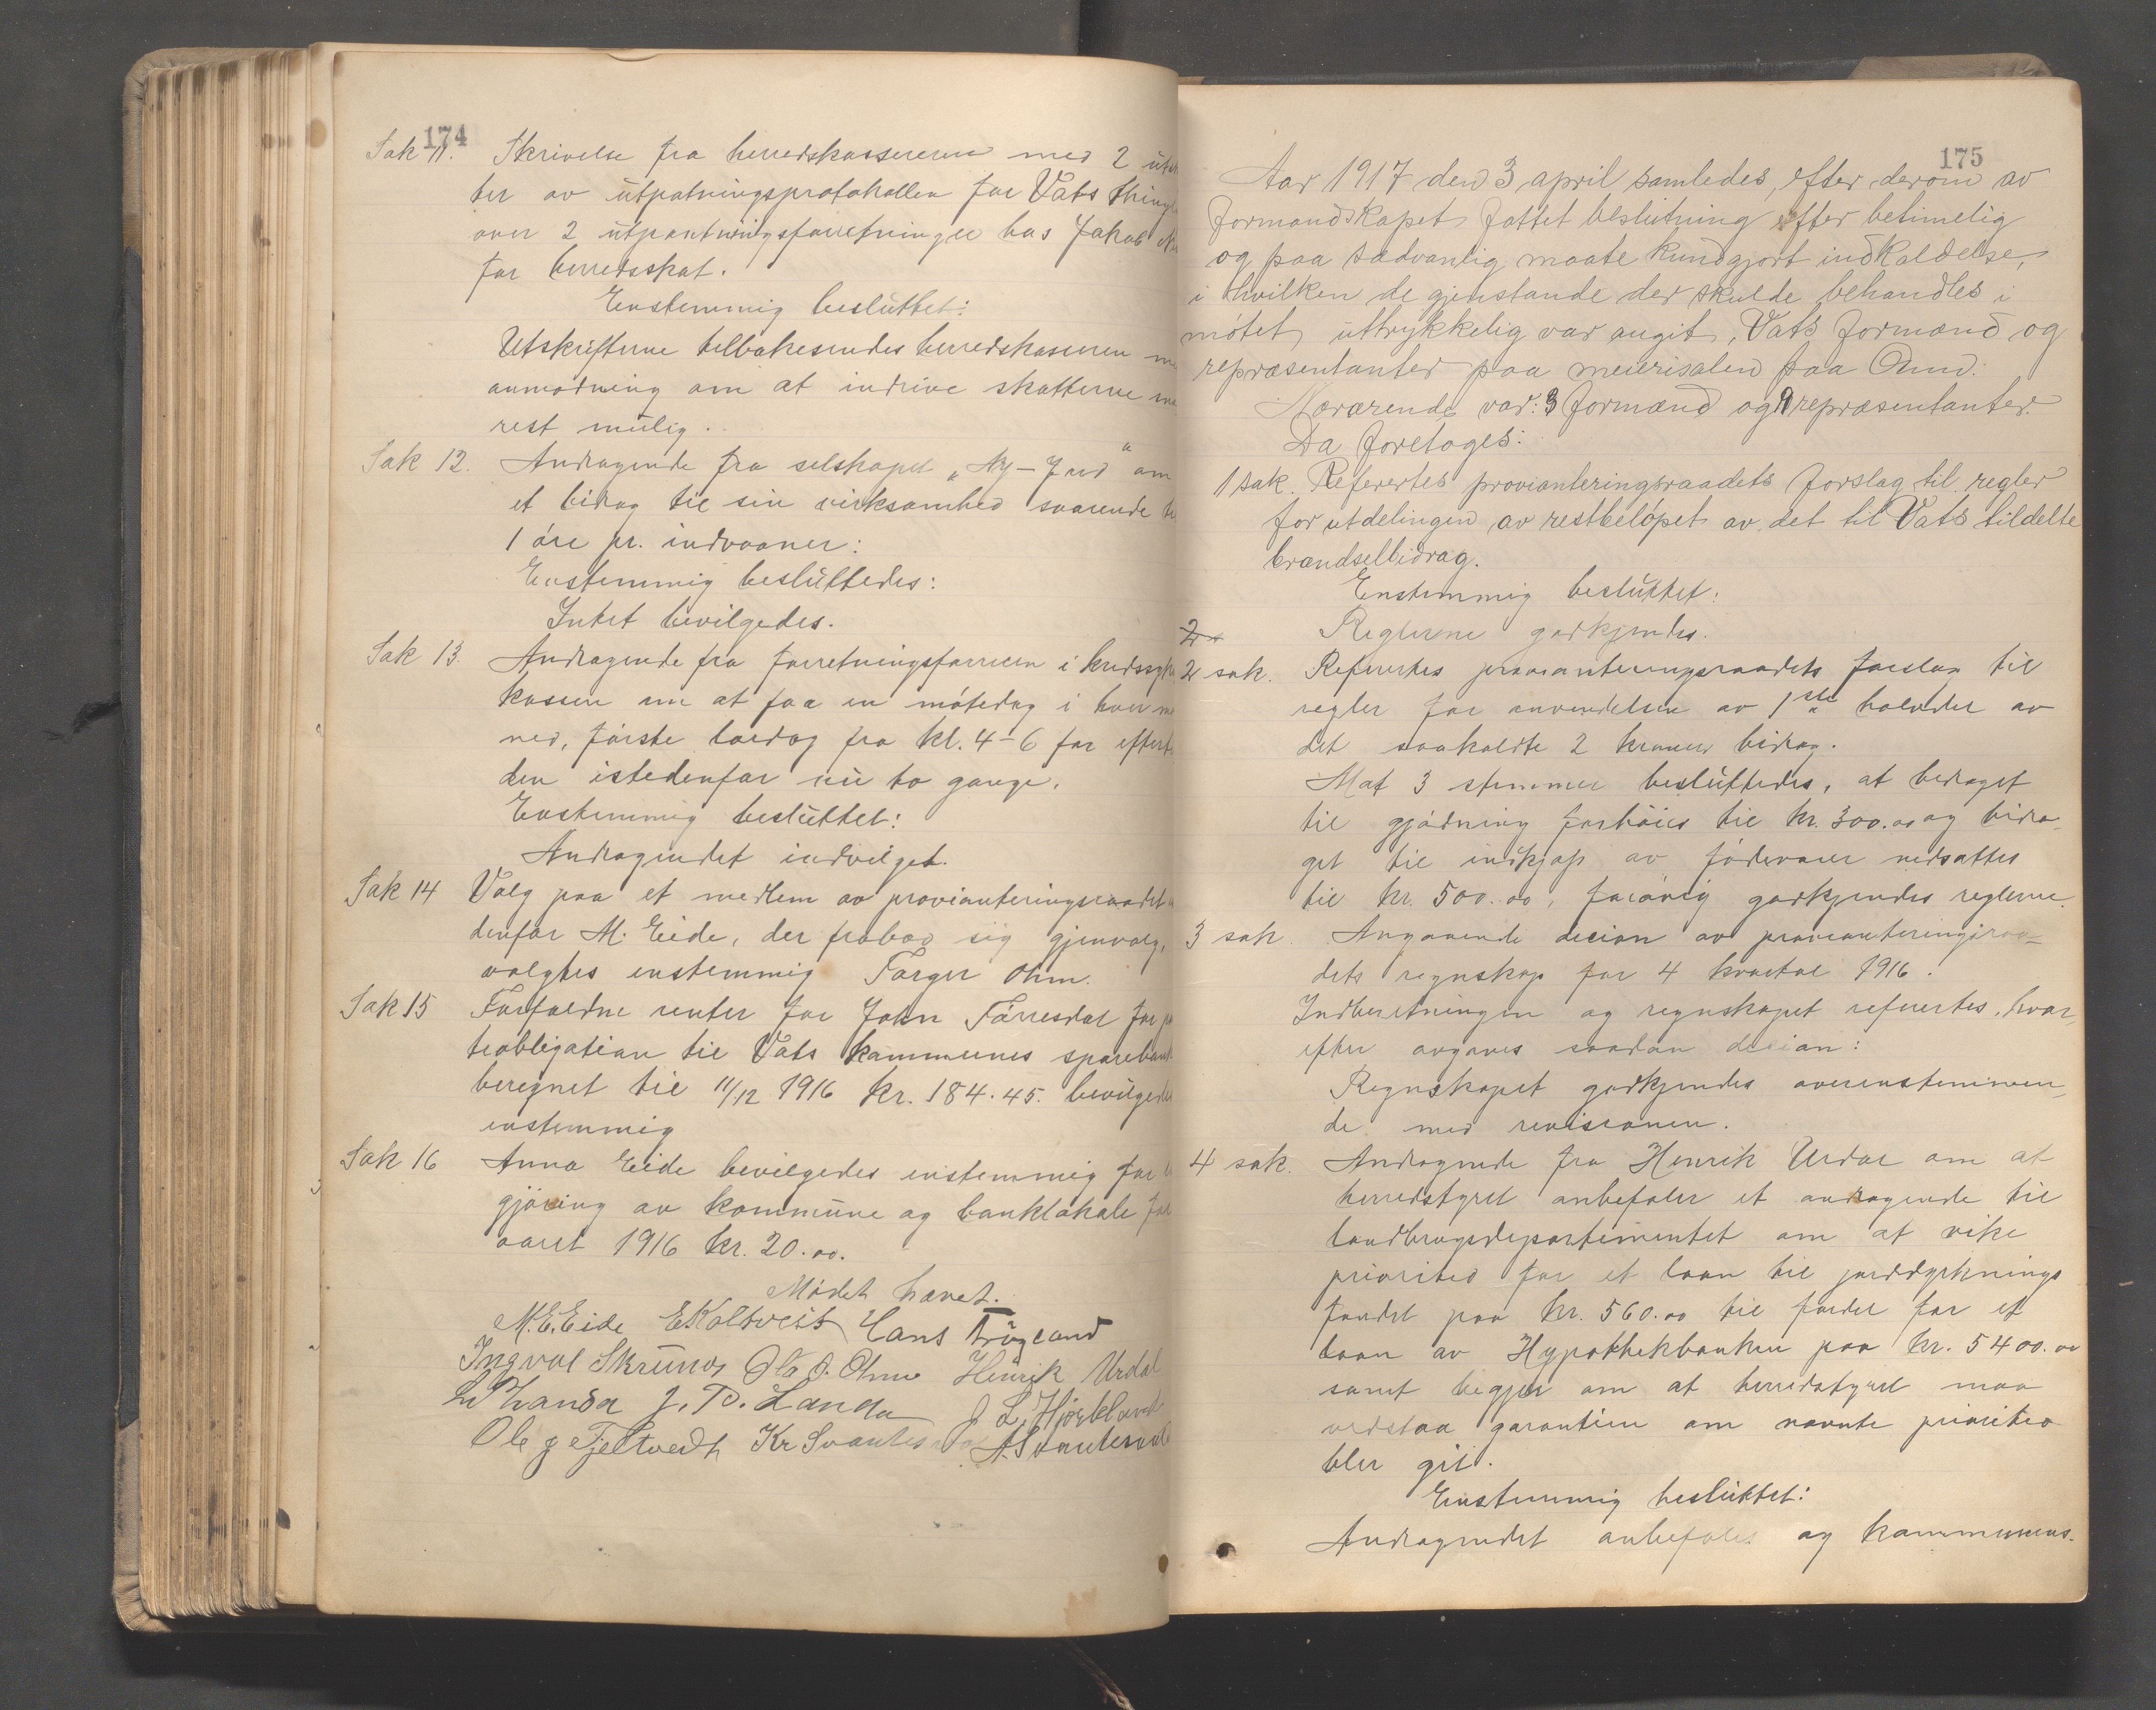 174
Sak 11. Skrivelse fra herredskassereren med 2
ter av utpatningsprotokollen for Vats
over 2 utpantningsforretninger hos Jakob
for herredsskat.
Enstemmig besluttet:
Utskrifterne tilbakesendes herredskasseren
anmodning om at indrive skatterne
rest mulig.
Sak 12. Andragende fra selskapet „Ny-Jord" om
et bidrag til sin virksomhed svarende
1 øre pr. indvaaner:
Enstemmig besluttedes:
Intet bevilgedes.
Sak 13. Andragende fra forretningsføreren i
kassen om at faa en møtedag i hver
ned, første lørdag fra kl. 4-6
den istedenfor nu to gange.
Enstemmig besluttet:
Andragendet indvilget.
Sak 14 Valg paa et medlem av provianteringsraadet
denfor M. Eide, der frabad sig gjenvalg,
valgtes enstemmig Torger Ohm.
Sak 15 Forfaldne renter for John Førresdal for
teobligation til Vats kommunes
beregnet til 11/12 1916 kr. 184.45. bevilgedes
enstemmig
Sak 16 Anna Eide bevilgedes enstemmig for
gjøring av kommune og banklokale for
aaret 1916 kr. 20.00.
Mødet hævet.
M.E. Eide E Kaltveit Hans Frøyland
Ingval Skrunes Ola O. Ohm Henrik Urdal
Landa J. T. Landa J L Hjorteland
Ole J Fjeltvedt Kr Svantes A. Svantesvold
175
Aar 1917 den 3 april samledes, efter derom av
formandskapet fattet beslutning efter betimelig
og paa sædvanlig maate kundgjort indkaldelse,
i hvilken de gjenstande der skulde behandles i
møtet uttrykkelig var angit, Vats formænd og
repræsentanter paa meierisalen paa Aam.
Nærværende var: 3 formænd og 9 repræsentanter.
Da foretoges:
1 sak. Refertes provianteringsraadets forslag til regler
for utdelingen av restbeløpet av det til Vats tildelte
brændselbidrag.
Enstemmig besluttet:
2
Reglerne godkjendes.
2 sak. Refertes provianteringsraadets forslag til
regler for anvendelsen av 1ste halvdel av
det saakaldte 2 kroners bidrag.
Mot 3 stemmer besluttedes, at bidraget
til gjødning forhøies til kr. 300.00 og bidra-
get til indkjøp av fødevarer nedsattes
til kr. 500.00, forøvrig godkjendes reglerne.
3 sak. Angaaende decion av provianteringsraa-
dets regnskap for 4 kvartal 1916.
Indberetningen og regnskapet refertes, hvor-
efter avgaves saadan decion:
Regnskapet godkjendes overenstemmen-
de med revisionen.
4 sak. Andragende fra Henrik Urdal om at
herredstyret anbefaler et andragende til
landbrugsdepartementet om at vike
prioritet for et laan til jorddyrknings
fondet paa kr. 560.00 til fordel for et
laan av Hypothekbanken paa kr. 5400.00
samt begjær om at herredstyret maa
vedstaa garantien om nævnte prioritet
blir git.
Enstemmig besluttet:
Andragendet anbefales og kommunens